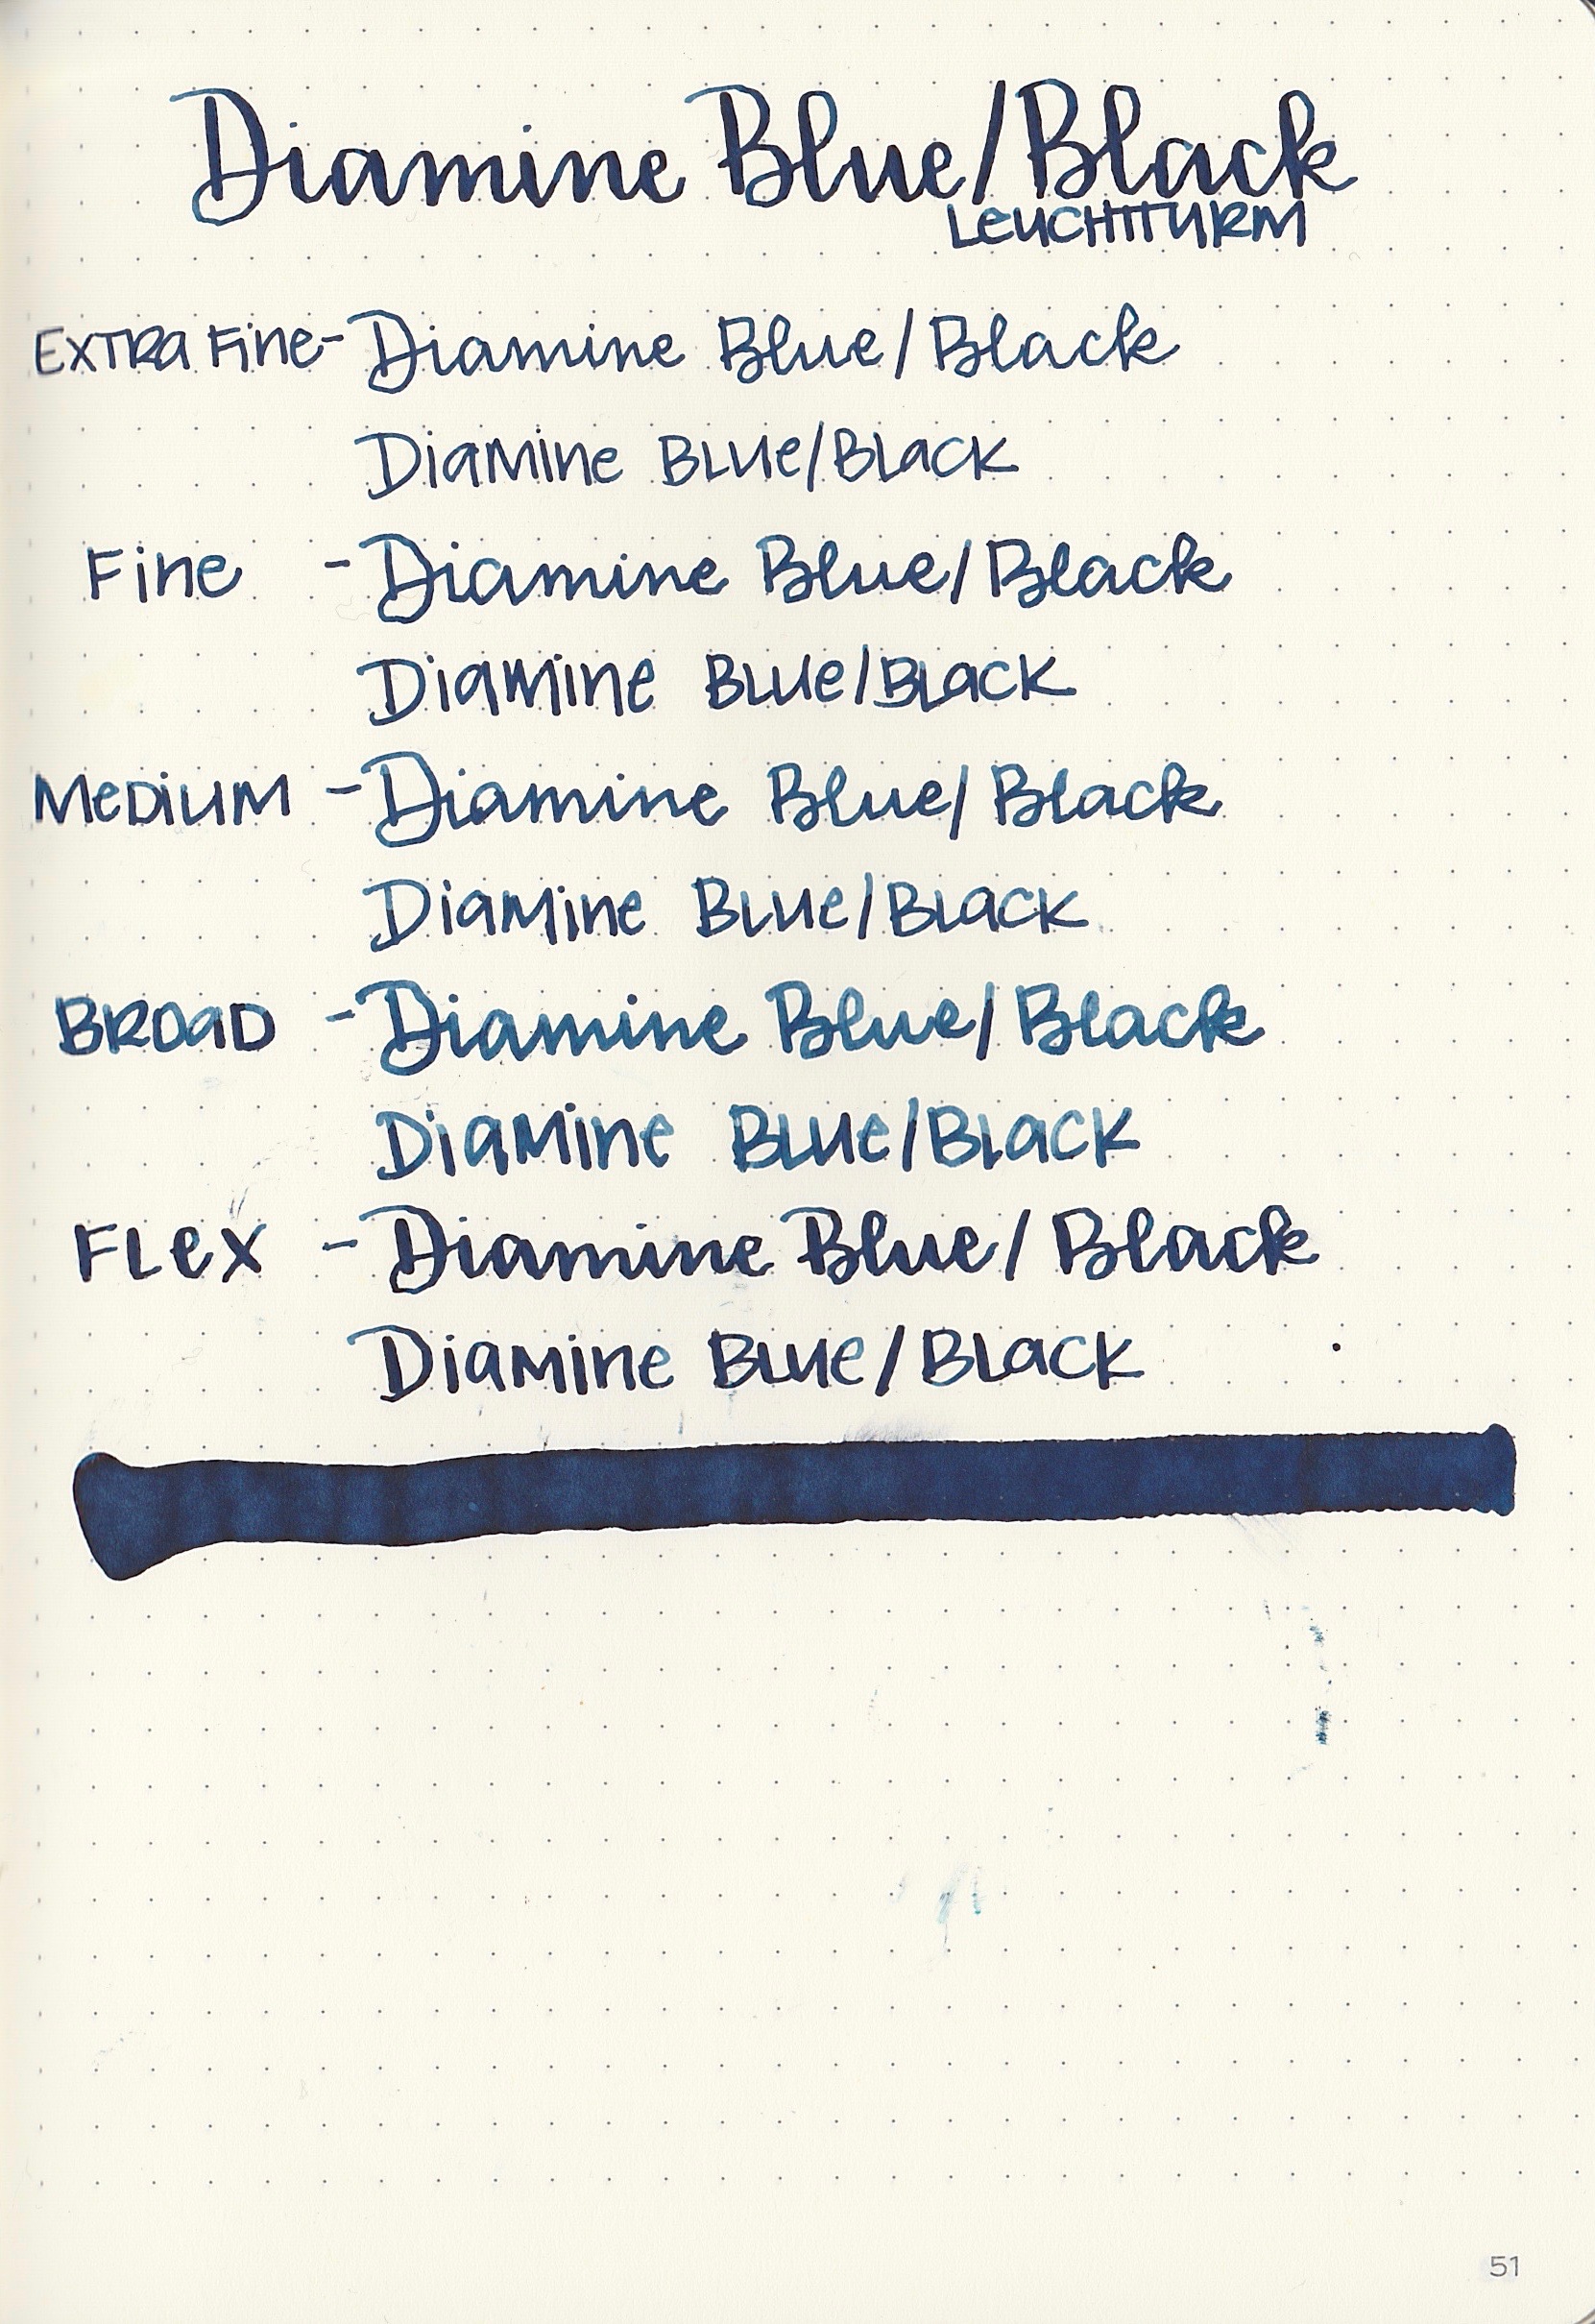 Diamine Blue/Black
LEUCHTTURM
EXTRA Fine - Diamine Blue/Black
Diamine Blue/Black
Fine - Diamine Blue/Black
Diamine Blue/Black
MeDiUM - Diamine Blue/Black
Diamine Blue/Black
BROAD - Diamine Blue/Black
Diamine Blue/Black
FLex - Diamine Blue/Black
Diamine Blue/Black
51